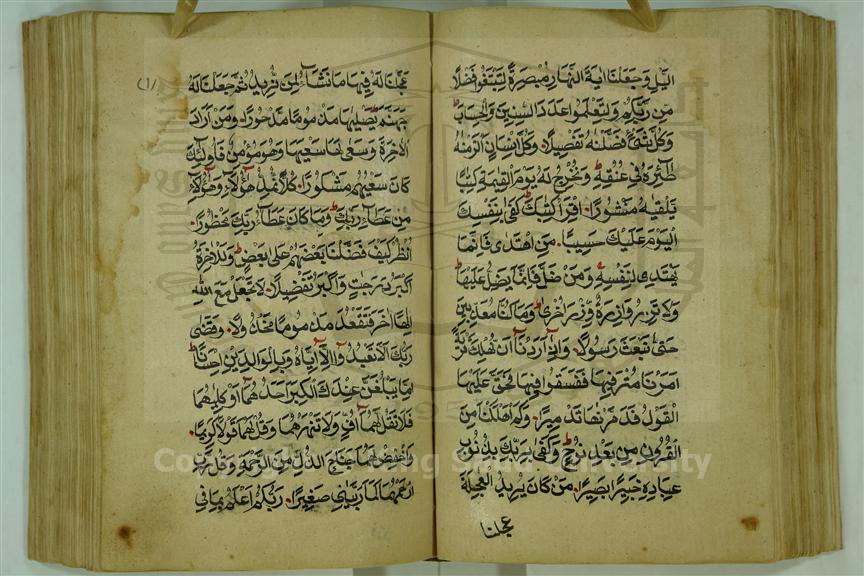 اليل وجعلنا اية النهار مبصرة لتبتغوا فضلا
من ربكم ولتعلموا عدد السنين والحساب
وكل شئ فصلنه تفصيلا وكل انسان الزمنه
طئره في عنقه ونخرج له يوم القيمة كتبا
يلقيه منشورا اقرا كتبك كفى بنفسك
اليوم عليك حسيبا من اهتدى فانما
يهتدي لنفسه ومن ضل فانما يضل عليها
ولا تزر وازرة وزر اخرى وما كنا معذبين
حتى نبعث رسولا واذا اردنا ان نهلك قرية
امرنا مترفيها ففسقوا فيها فحق عليها
القول فدمرنها تدميرا وكم اهلكنا من
القرون من بعد نوح وكفى بربك بذنوب
عباده خبيرا بصيرا من كان يريد العجلة
عجلنا
عجلنا له فيها ما نشاء لمن نريد ثم جعلنا له
جهنم يصليها مذموما مدحورا ومن اراد
الاخرة وسعى لها سعيها وهو مؤمن فاولئك
كان سعيهم مشكورا كلا نمد هؤلاء وهؤلاء
من عطاء ربك وما كان عطاء ربك محظورا
انظر كيف فضلنا بعضهم على بعض وللاخرة
اكبر درجت واكبر تفضيلا لا تجعل مع الله
الها اخر فتقعد مذموما مخذولا وقضى
ربك الا تعبدوا الا اياه وبالوالدين احسانا
اما يبلغن عندك الكبر احدهما او كليهما
فلا تقل لهما اف ولا تنهرهما وقل لهما قولا كريما
واخفض لهما جناح الذل من الرحمة وقل رب
ارحمهما كما ربيني صغيرا ربكم اعلم بما في